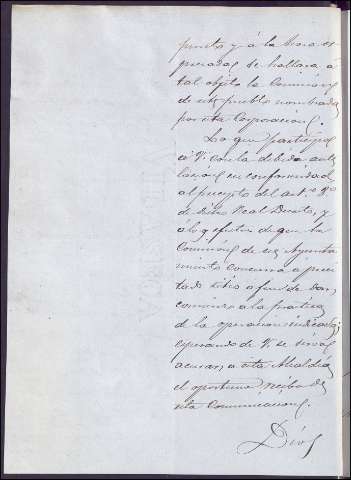 punto y á la hora es
presadas se hallara á
tal objeto la Comision
de este pueblo nombrada
por esta Corporacion.
Lo que participo
á V. con la debida ante
lacion en conformidad
al precepto del art.º 9º
de dicho Real Decreto, y
á los efectos de que la
Comision de ese Ayunta
miento concurra a
citado sitio a fin de dar
comienzo a la práctica
de la operacion indicada;
esperando de V. se sirva
acusar, a esta Alcaldia
el oportuno recibo de
esta Comunicacion.
Dios